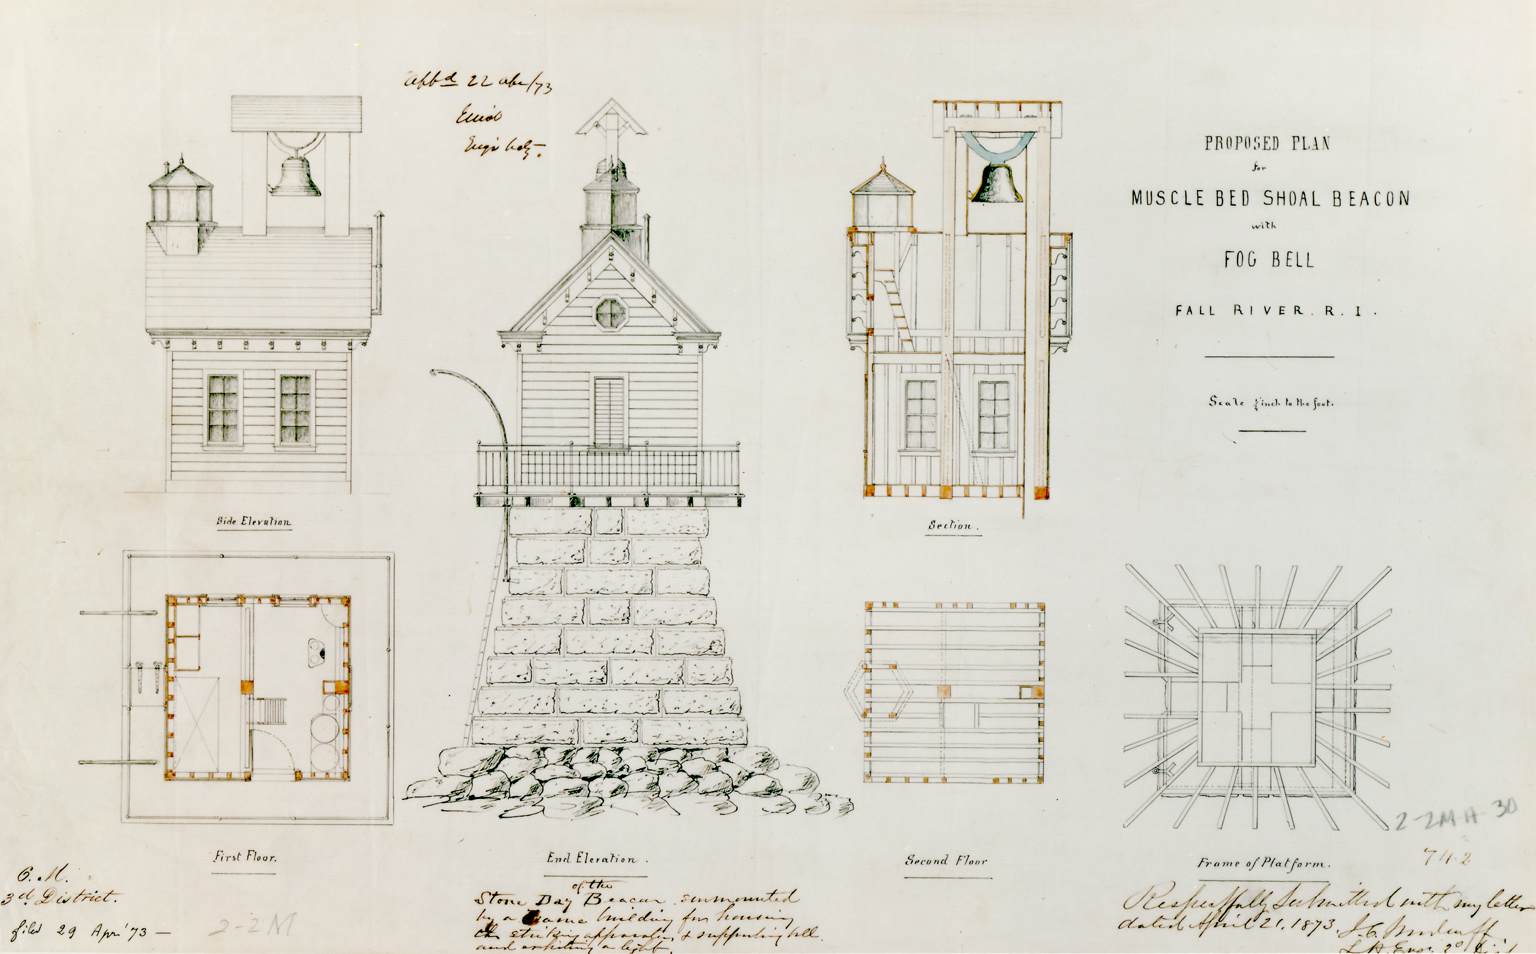 Appd 22 Apr/73
PROPOSED PLAN
for
MUSCLE BED SHOAL BEACON
with
FOG BELL
FALL RIVER. R. I.
Scale ¼ inch to the foot.
Side Elevation
Section.
First Floor.
End Elevation.
of the
Stone Day Beacon surmounted
by a frame building for housing
the striking apparatus & supporting bell
and exhibiting a light.
Second Floor
Frame of Platform.
2-2MA-30
74-2
3d District.
filed 29 Apr '73 —
2-2M
Respectfully Submitted with my letter
dated April 21, 1873.